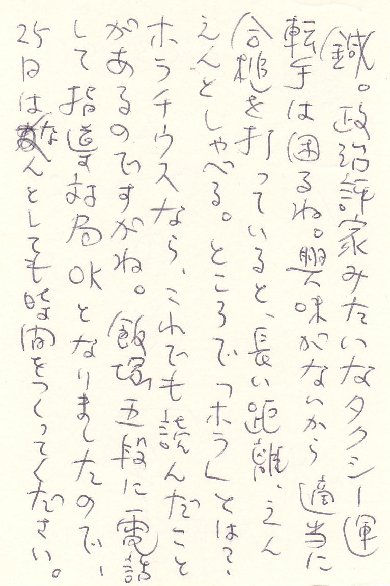 鍼。政治評家みたいなタクシー運
転手は困るね。興味がないから適当に
合槌を打っていると、長い距離、えん
えんとしゃべる。ところで「ホラ」とは？
ホラチウスなら、これでも読んだこと
があるのですがね。飯塚五段に電話
して指導対局OKとなりましたので、
25日はなんとしても時間をつくってください。